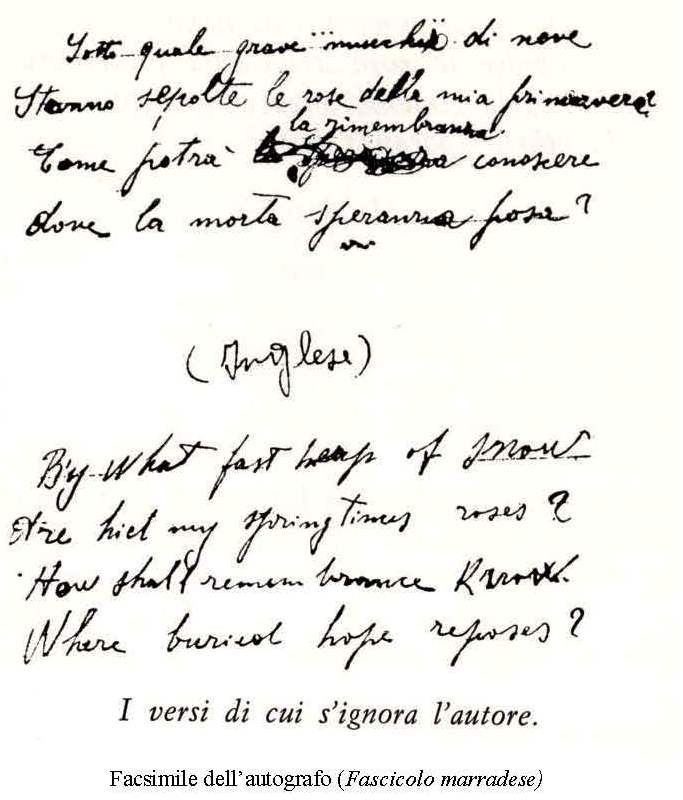 Sotto quale grave mucchio di neve
Stanno sepolte le rose della mia primavera?
la rimembranza
Come potrà conoscere
dove la morta speranza posa?
(Inglese)
By what fast heap of snow
Are hid my springtimes roses?
How shall remembrance know
Where buried hope reposes?
I versi di cui s'ignora l'autore.
Facsimile dell'autografo (Fascicolo marradese)